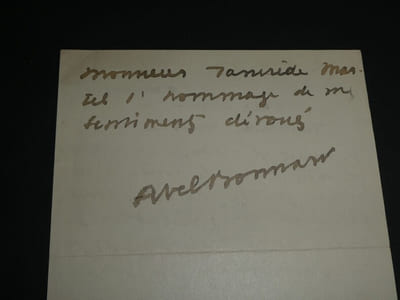 Monsieur Tancrède Mar-
tel l'hommage de mes
sentiments dévoués
Abel Bonnard